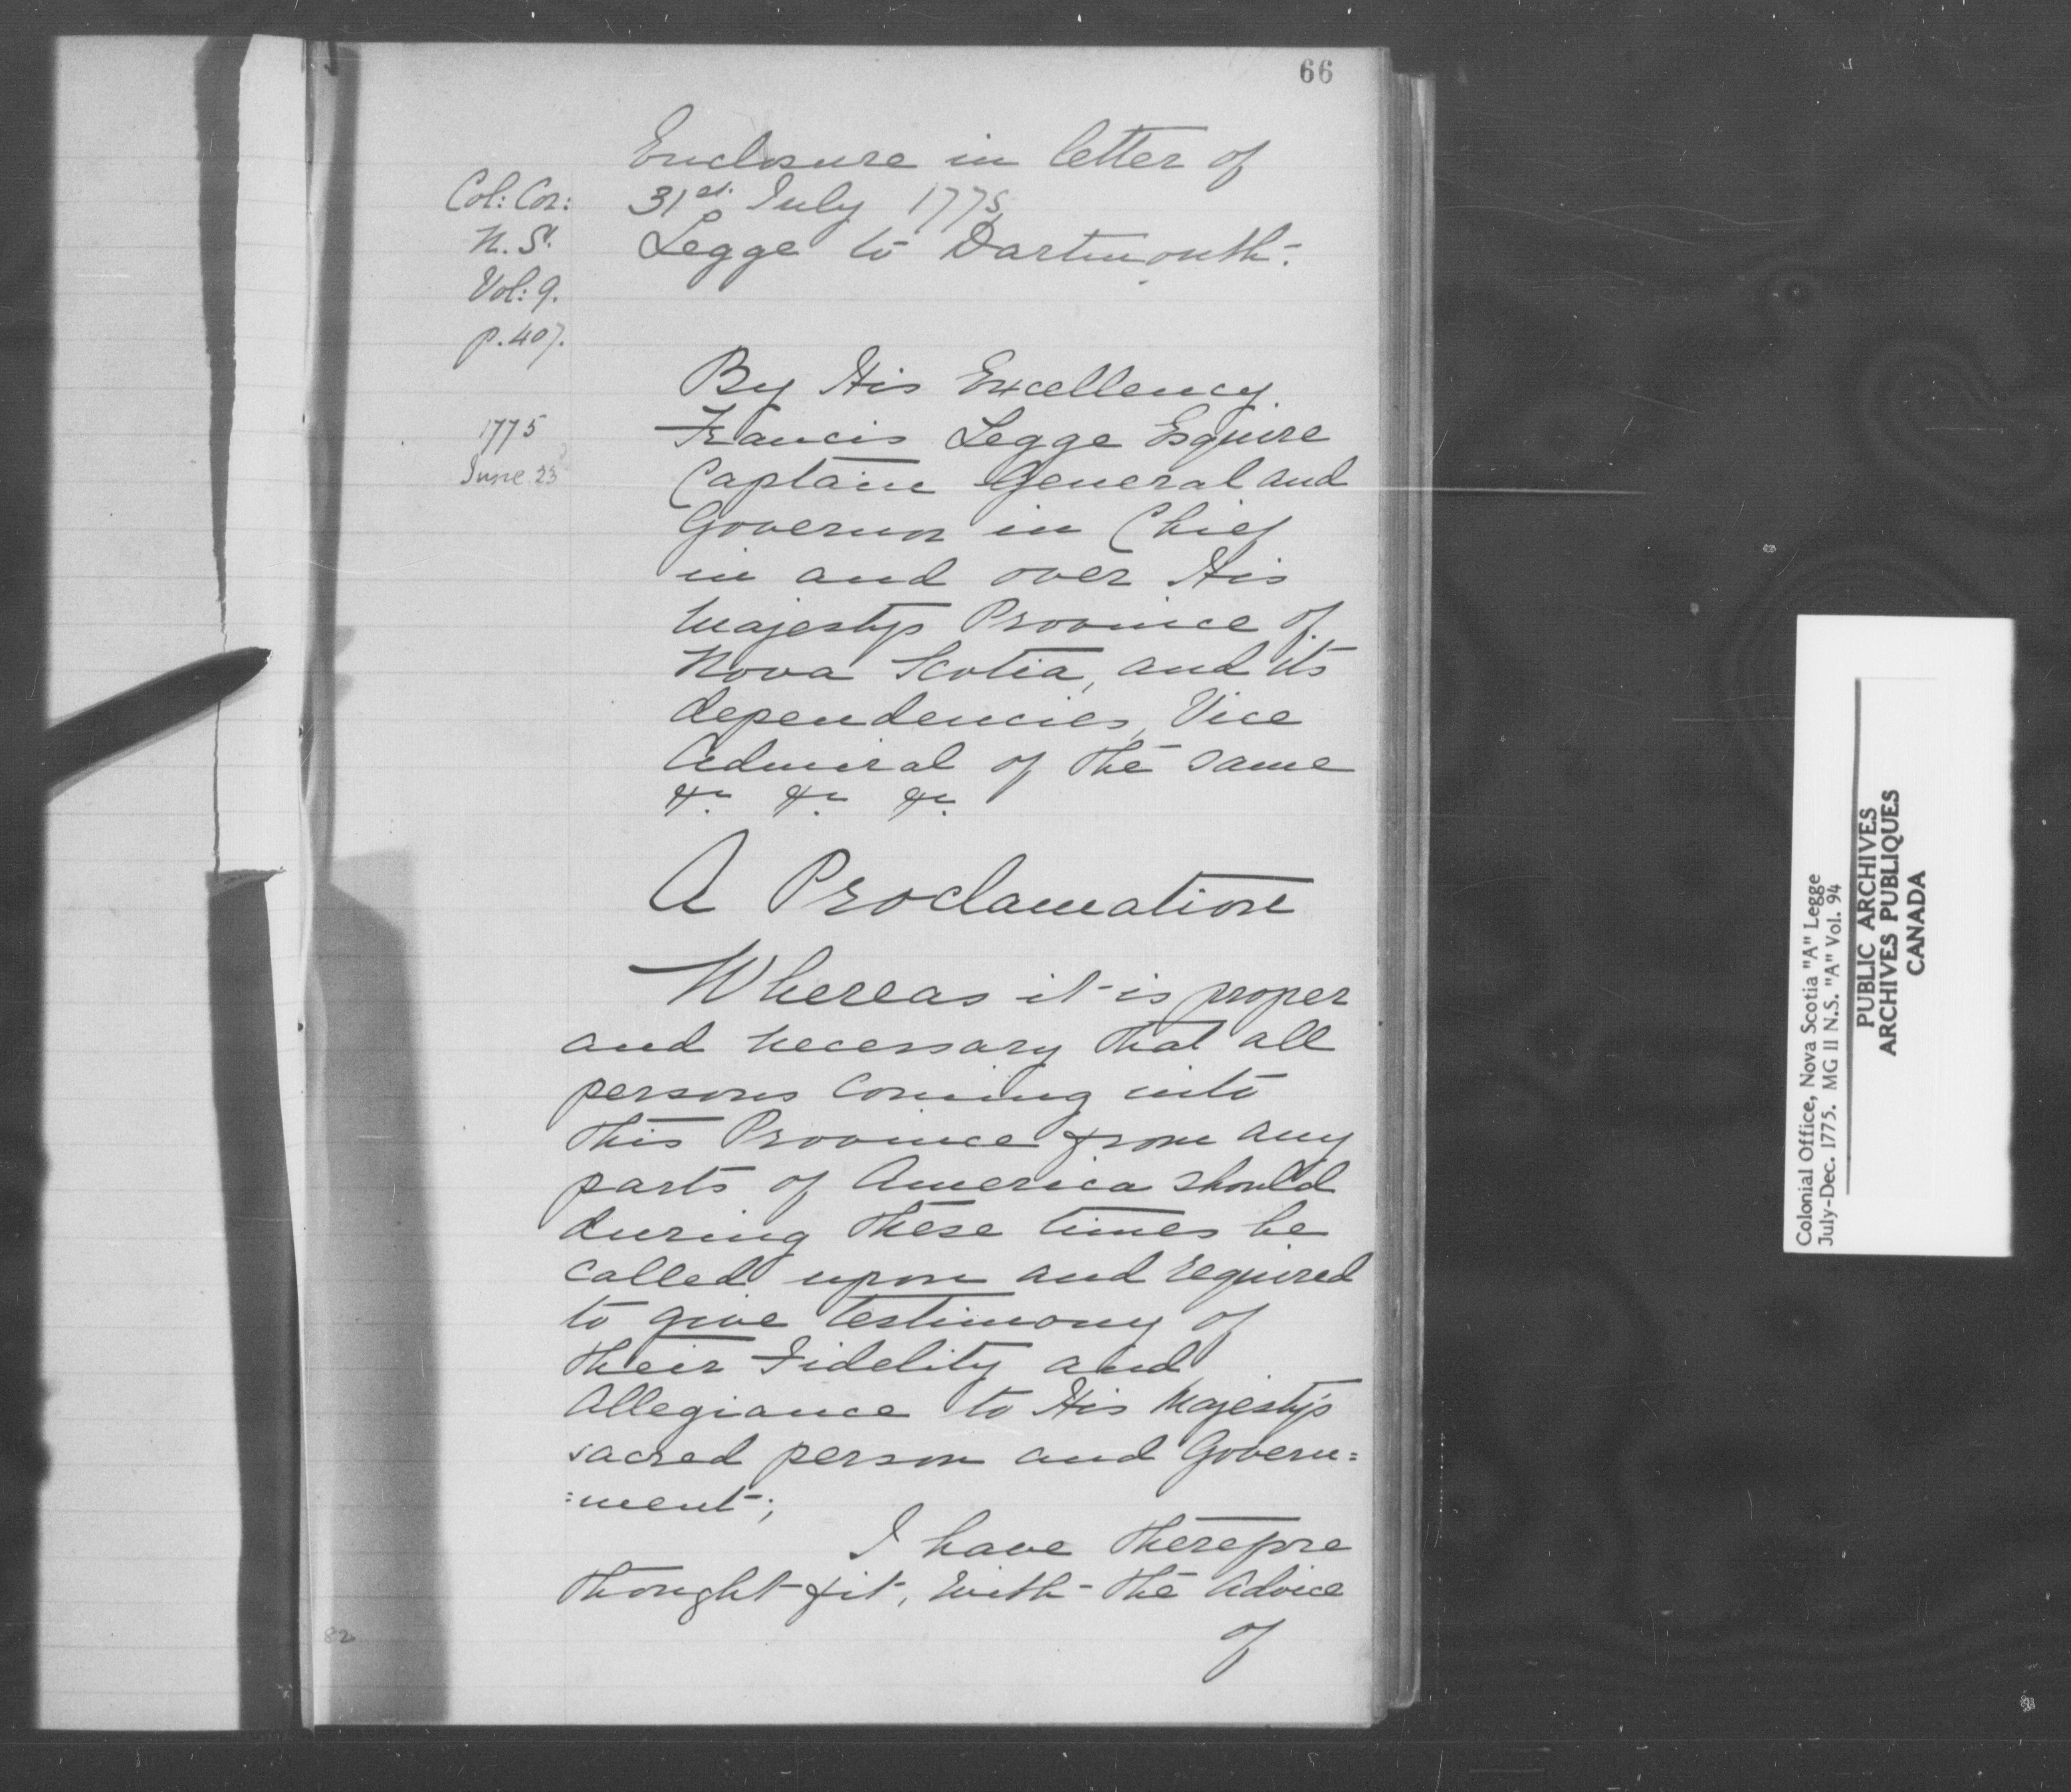 66
Enclosure in letter of
31st. July 1775
Legge to Dartmouth:
Col: Cor:
N. S.
Vol: 9.
p. 407.
1775
June 23d
By His Excellency
Francis Legge Esquire
Captain General and
Governor in Chief
in and over His
Majestys Province of
Nova Scotia, and its
dependencies, Vice
Admiral of the same
&c. &c. &c.
A Proclamation
Whereas it is proper
and necessary that all
persons coming into
this Province from any
parts of America should
during these times be
called upon and required
to give testimony of
their Fidelity and
Allegiance to His Majesty's
sacred person and Govern=
=ment;
I have therefore
thought fit, with the advice
of
82
Colonial Office, Nova Scotia "A" Legge
July-Dec. 1775. MG 11 N.S. "A" Vol. 94
PUBLIC ARCHIVES
ARCHIVES PUBLIQUES
CANADA